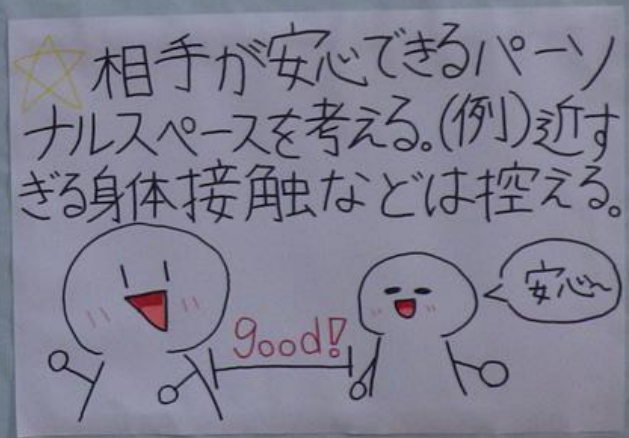 ☆相手が安心できるパーソ
ナルスペースを考える。(例)近す
ぎる身体接触などは控える。
安心~
good!